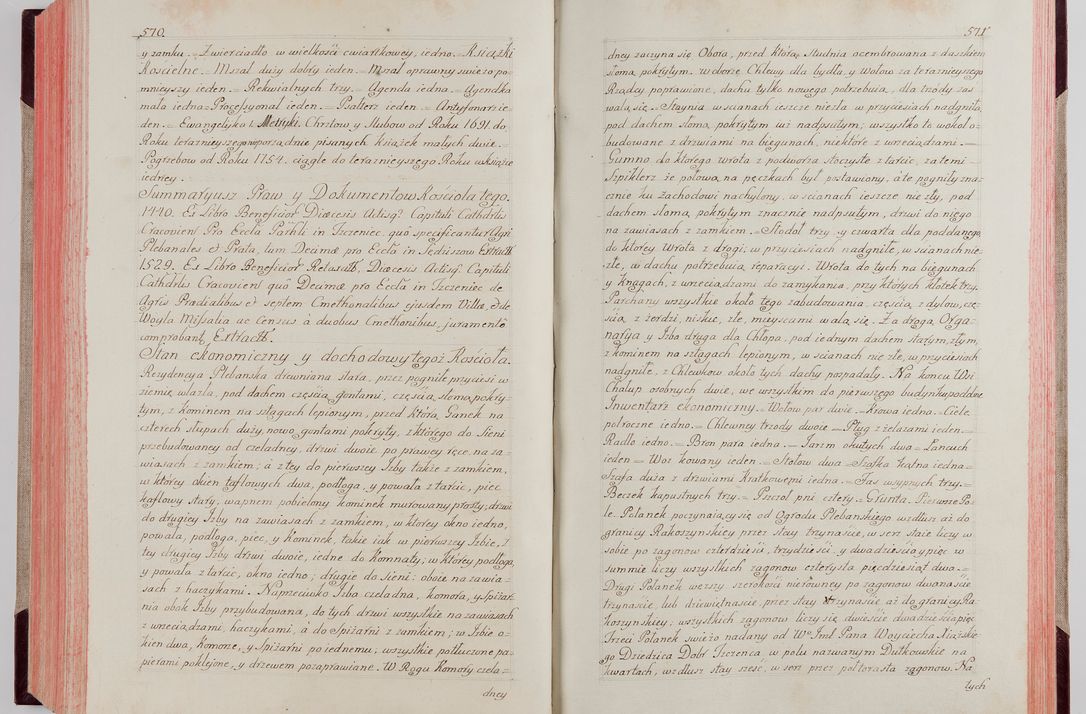 570
y zamku. = Zwierciadło w wielkości cwiartkowey, iedno. = Ksiązki
Kościelne. = Mszał duży dobry ieden. = Mszał oprawny świeżo po=
mnieyszy ieden. = Rekwialnych trzy. = Agenda iedna. = Agendka
mała iedna. = Procesyonał ieden. = Psałterz ieden. = Antyfonarz ie=
den. = Ewangelyka 1. Metryki Chrztow y Slubow od Roku 1691. do
Roku teraznieyszego nieporządnie pisanych ksiązek małych dwie. =
Pogrzebow od Roku 1754. ciągle do teraznieyszego Roku w ksiązce
iedney. =
Summaryusz Praw y Dokumentow Kościoła tego.
1440. Ex Libro Beneficior Diæcesis Actisq; Capituli Cathdrlis
Cracovien Pro Eccla Parhli in Tczeniec, quo specificantur Agri
Plebanales et Prata, tum Decimæ pro Eccla in Sędziszow Extractt.
1529. Ex Libro Beneficior Retaxatt. Diæcesis Actisq; Capituli
Cathdrlis Cracovien quo Decimæ pro Eccla in Tczeniec de
Agris Prædialibus et septem Cmethonalibus ejusdem Villæ, et de
Woyla Missalia ac Census à duobus Cmethonibus, juramento
comprobant, Extractt.
Stan ekonomiczny y dochodowy tegoż Kościoła.
Rezydencya Plebańska drewniana stara, przez pogniłe przyciesi w
ziemię wlazła, pod dachem częścią gontami, częścią słomą pokry=
tym, z kominem na szlagach lepionym, przed którą Ganek na
czterech słupach duży, nowo gontami pokryty, z którego do Sieni
przebudowaney od czeladney, drzwi dwoie po prawey ręce, na za=
wiasach z zamkiem; à z tey do pierwszey Izby takie z zamkiem,
w ktorey okien taflowych dwa, podłoga, y powała z tarcic, piec
kaflowy stary, wapnem pobielony kominek murowany prosty; drzwi
do drugiey Izby na zawiasach z zamkiem, w ktorey okno iedno,
powała, podłoga, piec, y kominek, takie iak w pierwszey Izbie, z
tey drugiey Izby drzwi dwoie, iedne do Komnaty, w ktorey podłoga,
y powała z tarcic, okno iedno; drugie do Sieni: oboie na zawia=
sach z haczykami. Naprzeciwko Izba czeladna, komora, y Spiżar=
nia obok Izby przybudowana, do tych drzwi wszystkie na zawiasach
z wrzeciądzami, haczykami, à do Spiżarni z zamkiem; w Izbie o=
kien dwa, Komorze, y Spiżarni po iednemu; wszystkie potłuczone pa=
pierami poklejone, y drzewem pozaprawiane. W Rogu Komory czela=
dney
571
dney zaczyna się Obora, przed którą Studnia ocembrowana z daszkiem
słomą pokrytym. W oborze Chlewy dla bydła, y Wołow za teraznieyszego
Rządcy poprawione, dachu tylko nowego potrzebuią, dla trzody zaś
walą się. = Staynia w ścianach ieszcze niezła w przyciesiach nadgniła,
pod dachem słomą pokrytym iuż nadpsutym; wszystko to wokoł o=
budowane z drzwiami na biegunach, niektóre z wrzeciądzami. =
Gumno do którego wrota z podworza stoczyste z tarcic, za temi
Szpiklerz że połową na peczkach był postawiony, a te pogniły zna=
cznie ku Zachodowi nachylony, w ścianach ieszcze nie zły, pod
dachem słomą pokrytym znacznie nadpsutym, drzwi do niego
na zawiasach z zamkiem. = Stodoł trzy, y czwarta dla poddanego,
do ktorey Wrota z drogi; w przyciesiach nadgniłe, w ścianach nie
złe, w dachu potrzebuią reparacyi. Wrota do tych na biegunach
y knagach, z wrzeciądzami do zamykania, przy ktorych kłotek trzy.
Parchany wszystkie około tego zabudowania, częścią z dylow, czę=
ścią z żerdzi, niskie, złe, mieyscami walą się. Za drogą Orga=
naryia y Izba druga dla Chłopa, pod iednym dachem starym, złym,
z kominem na szlagach lepionym, w ścianach nie złe, w przyciesiach
nadgniłe, z Chlewkow około tych dachy pospadały. Na końcu Wsi
Chałup osobnych dwie, we wszystkim do pierwszego budynku podobne.
Inwentarz ekonomiczny. = Wołow par dwie. = Krowa iedna. = Ciele
poroczne iedno. = Chlewney trzody dwoie. = Pług z żelazami ieden. =
Radło iedno. = Bron para iedna. = Jarzm okutych dwa. = Łancuch
ieden. = Woz kowany ieden. = Stołow dwa. = Szafka kątna iedna. =
Szafa duża z drzwiami Kratkowemi iedna. = Fas wsypnych trzy. =
Beczek kapustnych trzy. = Pszczoł pni cztery. = Grunta. Pierwsze Po=
le. Polanek poczynaiący się od Ogrodu Plebańskiego wzdłuż aż do
granicy Rakoszyńskiey przez stay trzynaście, w szerz staie liczy w
sobie po zagonow czterdzieści, trzydzieści, y dwadzieścia y pięc w
summie liczy wszystkich zagonow czterysta pięcdziesiąt dwa. =
Drugi Polanek wszerz szerokości nierowney po zagonow dwanaście,
trzynaście, lub dziewiętnaście, przez stay trzynaście aż do granicy Ra=
koszynskiey; wszystkich zagonow liczy się dwieście dwadzieścia pięc.
Trzeci Polanek świeżo nadany od Wo Jmć Pana Woyciecha Siażskie=
go Dziedzica Dobr Tczenca, w polu nazwanym Dutkowskie na
kwartach, wzdłuż stay sześć, w szerz przez połtorasta zagonow. Na
tych